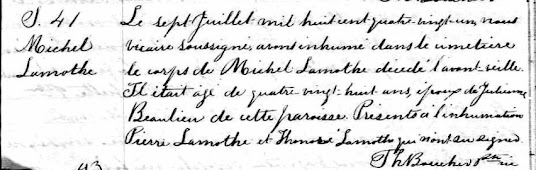 S. 41
Michel
Lamothe
Le sept Juillet mil huit cent quatre-vingt-un, nous
vicaire soussigné, avons inhumé dans le cimetière
le corps de Michel Lamothe décédé l'avant-veille.
Il était âgé de quatre-vingt-huit ans, époux de Julienne
Beaulieu de cette paroisse. Présents à l'inhumation
Pierre Lamothe et Honoré Lamothe qui n'ont su signer.
Th Boucher Ptre